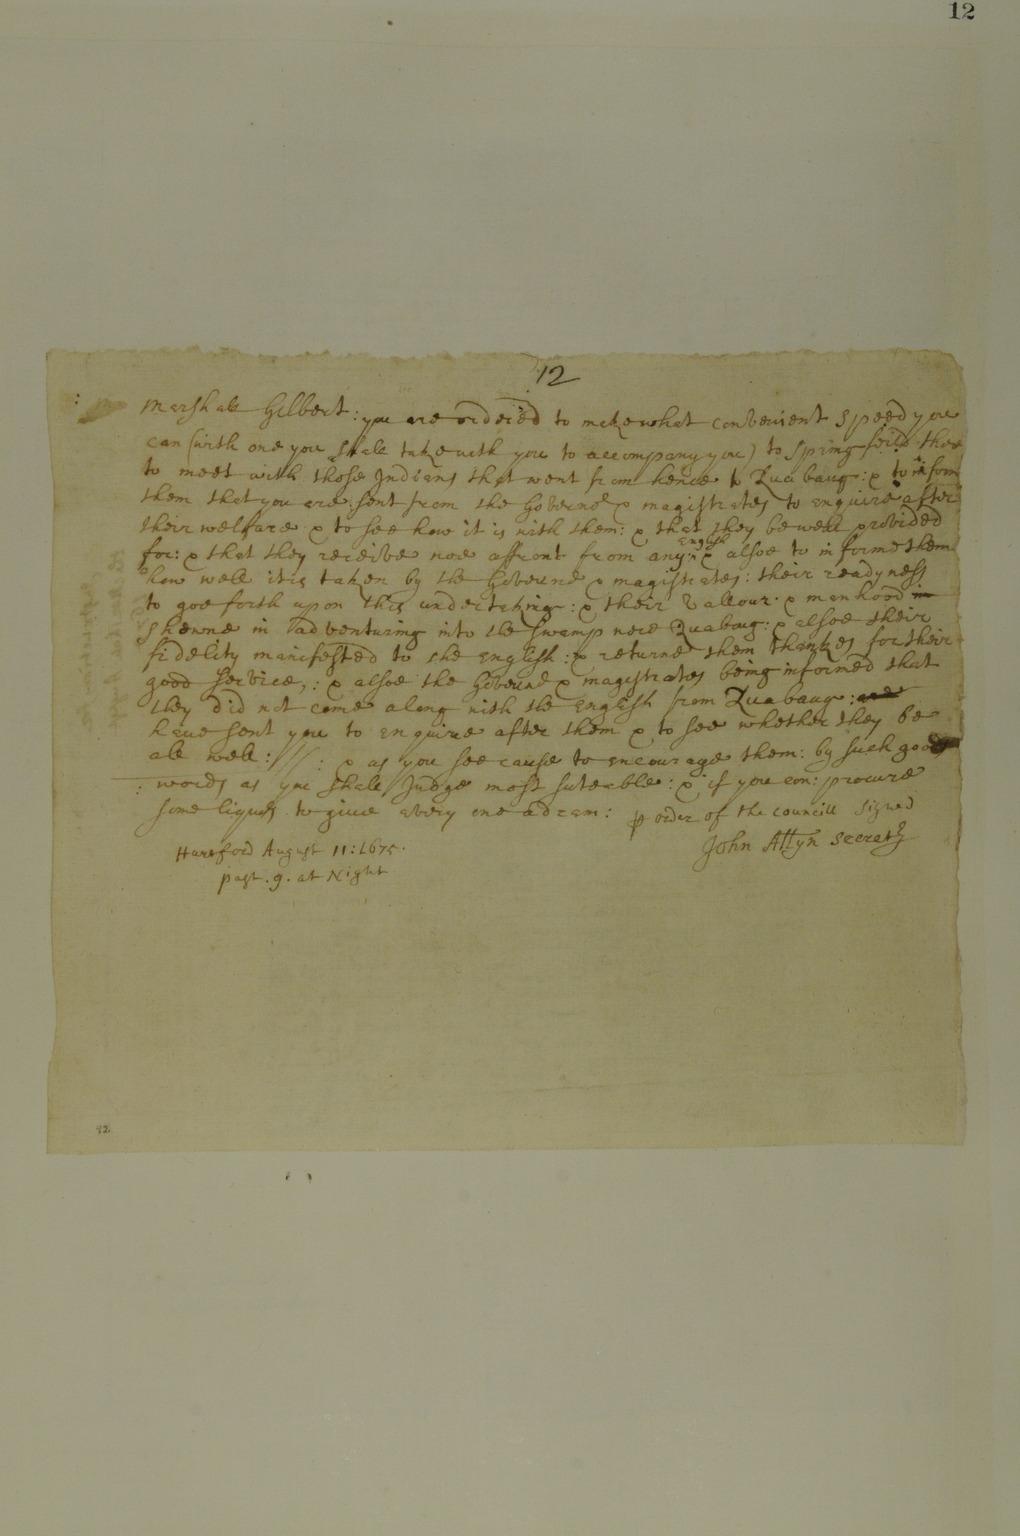 12
12
Marshall Gilbert: you are ordered to make what convenient speed you
can (with one you shall take with you to accompany you) to Springfeild there
to meet with those Indians that went from hence to Quabaug: & to inform
them that you are sent from the Governo & magistrates to enquire after
their welfare & to see how it is with them: & that they be well provided
for: & that they receive noe affront from any English & alsoe to informe them
how well it is taken by the Governo & magistrates: their readyness
to goe forth upon this undertaking: & their vallour & manhood in
shewne in adventuring into the swamp nere Quabaug: & alsoe their
fidelity manifested to the English: & returne them thankes for their
good service,: & alsoe the Governo & magistrates being informed that
they did not come along with the English from Quabaug:
have sent you to enquire after them & to see whether they be
all well: // : & as you see cause to encourage them: by such good
: words as you shall Judge most suteable: & if you can: procure
some liquors to give every one a dram: p order of the councill Signed
John Allyn Secretry
Hartford August 11: 1675.
past .9. at Night
12